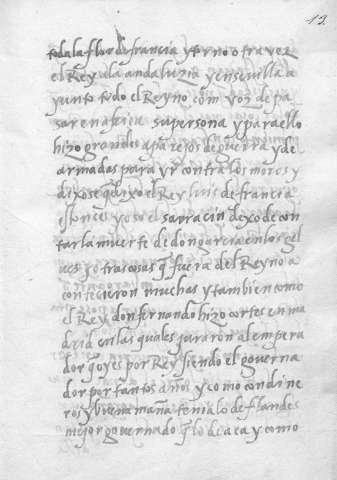 13.
toda la flor de françia y torno otra vez
el Rey a la andaluzia y en sevilla a
yunto todo el Reyno com voz de pa
sar en africa su persona y para ello
hizo grandes aparejos de guerra y de
armadas para yr contra los moros y
dixose q̃ dixo el Rey luis de francia
yo so el sarracin dexo de con
tar la muerte de don garcia en los gel
ves y otras cosas q̃ fuera del Reyno a
contecieron muchas y tambien como
el Rey don fernando hizo cortes en ma
drid en las quales juraron al empera
dor q̃ oy es por Rey siendo el governa
dor por tantos años y como con dine
ros y buena maña tenia lo de flandes
mejor governado q̃ lo de aca y como